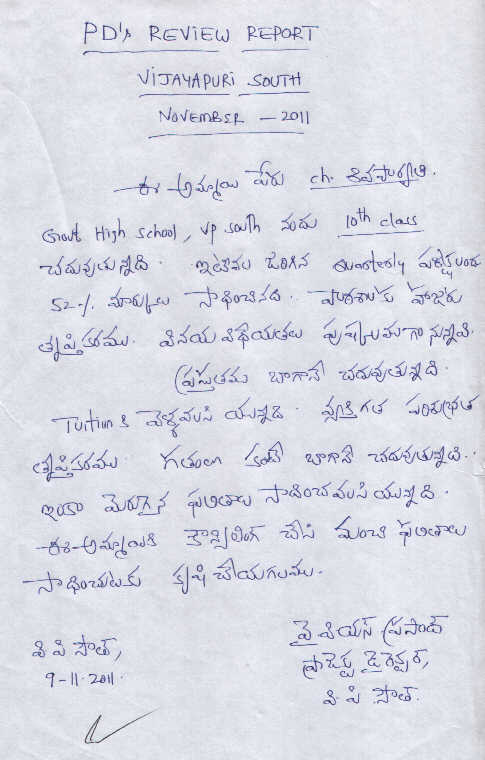 PD's REVIEW REPORT
VIJAYAPURI SOUTH
NOVEMBER - 2011
ఈ అమ్మాయి పేరు ch. శివపార్వతి.
Govt High school, VP south నందు 10th class
చదువుతున్నది. ఇటీవల జరిగిన Quarterly పరీక్షలందు
52% మార్కులు సాధించినది. పాఠశాలకు హాజరు
తృప్తికరము. వినయ విధేయతలు పుష్కలముగా నున్నవి.
ప్రస్తుతము బాగానే చదువుతున్నది.
Tuition కి వెళ్ళవలసి యున్నది. వ్యక్తిగత పరిశుభ్రత
తృప్తికరము. గతంలో కంటే బాగానే చదువుతున్నది..
ఇంకా మెరుగైన ఫలితాలు సాధించవలసి యున్నది.
ఈ అమ్మాయికి కౌన్సిలింగ్ చేసి మంచి ఫలితాలు
సాధించుటకు కృషి చేయగలము.
వై పియస్ ప్రసాద్
ప్రాజెక్టు డైరెక్టర్,
వి. పి సౌత్.
వి పి సౌత్,
9-11-2011.